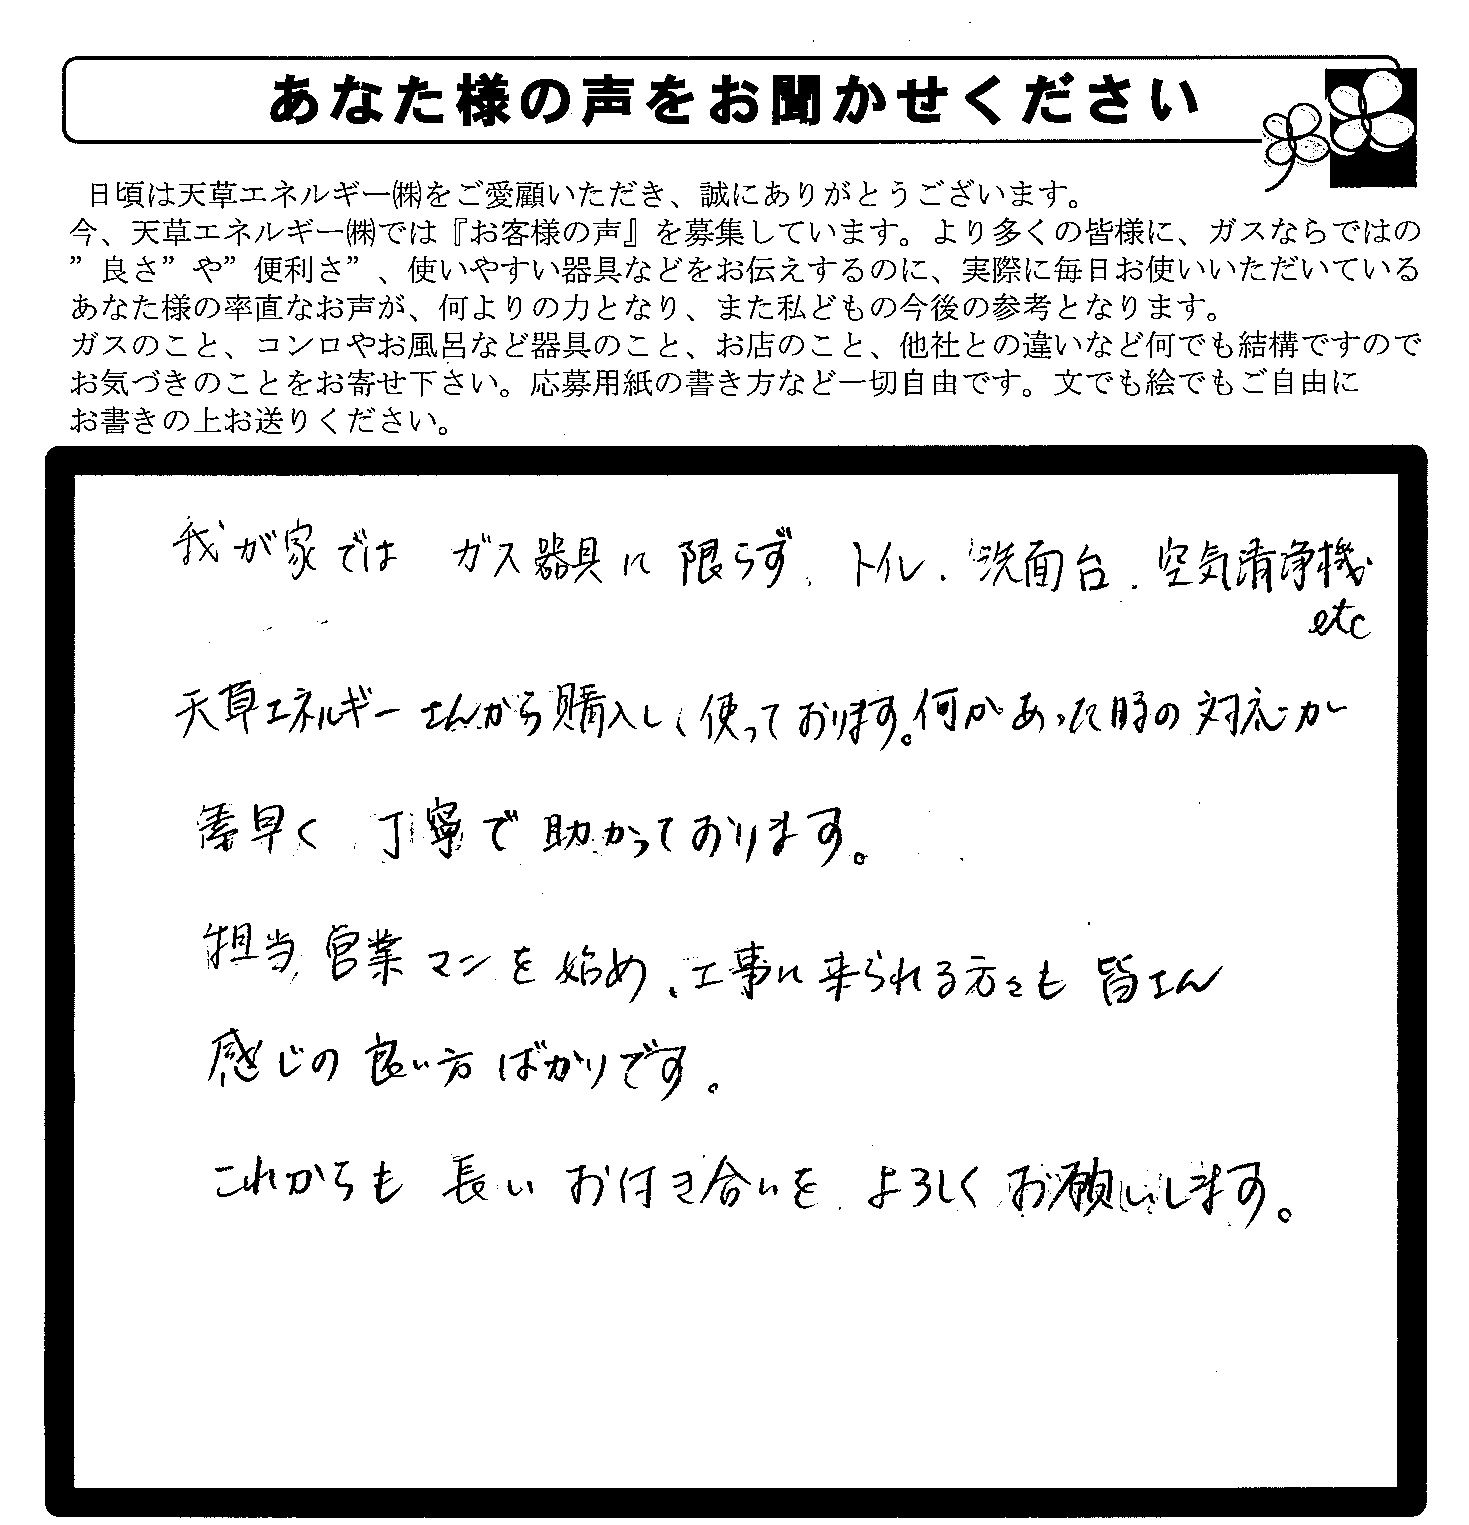 あなた様の声をお聞かせください
日頃は天草エネルギー㈱をご愛顧いただき、誠にありがとうございます。
今、天草エネルギー㈱では『お客様の声』を募集しています。より多くの皆様に、ガスならではの
”良さ”や”便利さ”、使いやすい器具などをお伝えするのに、実際に毎日お使いいただいている
あなた様の率直なお声が、何よりの力となり、また私どもの今後の参考となります。
ガスのこと、コンロやお風呂など器具のこと、お店のこと、他社との違いなど何でも結構ですので
お気づきのことをお寄せ下さい。応募用紙の書き方など一切自由です。文でも絵でもご自由に
お書きの上お送りください。
我が家では ガス器具に限らず、トイレ、洗面台、空気清浄機
etc
天草エネルギーさんから購入し、使っております。何かあった時の対応が
素早く 丁寧で助かっております。
担当営業マンを始め、工事に来られる方々も皆さん
感じの良い方ばかりです。
これからも 長いお付き合いを よろしくお願いします。